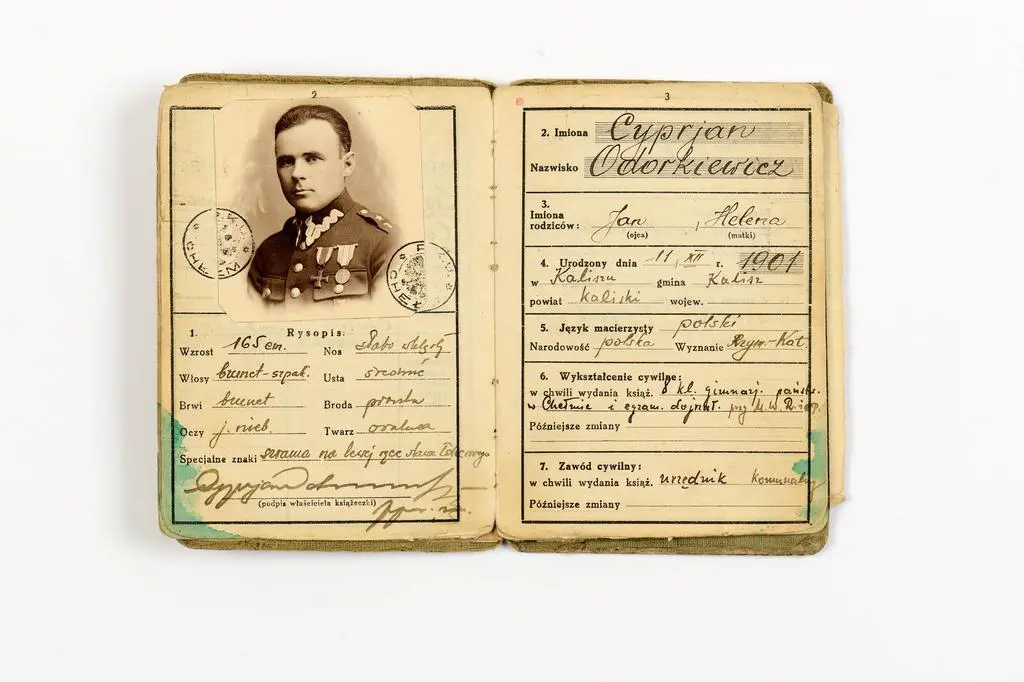 2
P.K.U.
CHEŁM
P.K.U.
CHEŁ
1. Rysopis:
Wzrost 165 cm. Nos słabo
Włosy brunet-szpak. Usta średnie
Brwi brunet Broda prosta
Oczy j. nieb. Twarz owalna
Specjalne znaki szrama na lewej ręce
Cyprjan
(podpis właściciela książeczki)
3
2. Imiona Cyprjan
Nazwisko Odorkiewicz
3.
Imiona
rodziców: Jan, Helena
(ojca) (matki)
4. Urodzony dnia 11, XII r. 1901
w Kaliszu gmina Kalisz
powiat kaliski wojew.
5. Język macierzysty polski
Narodowość polska Wyznanie Rzym-Kat.
6. Wykształcenie cywilne:
w chwili wydania książ. 8 kl. gimnazj. państw.
w Chełmie i egzam. dojrzał. przy M.W.R.
Późniejsze zmiany
7. Zawód cywilny:
w chwili wydania książ. urzędnik komunalny
Późniejsze zmiany